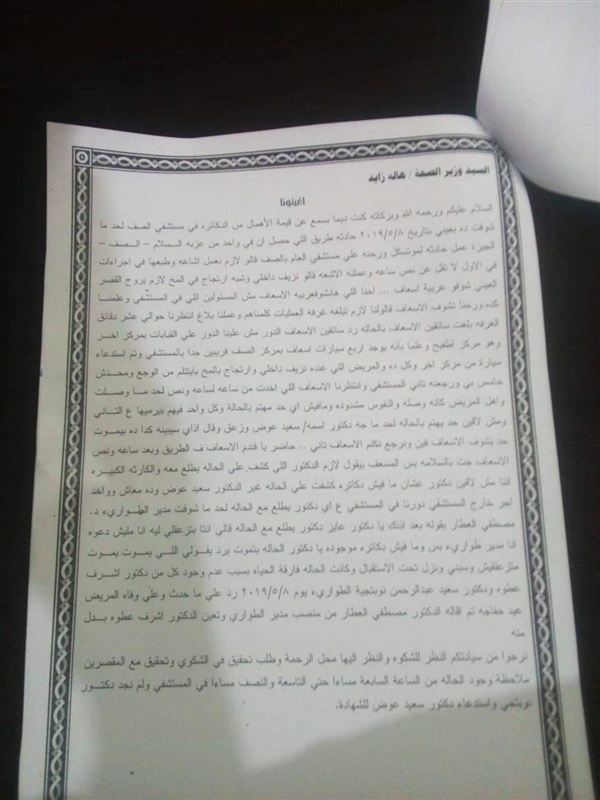 السيد وزير الصحة / هاله زايد
اغيثونا
السلام عليكم ورحمه الله وبركاته كنت ديما بسمع عن قيمة الأهمال من الدكاتره في مستشفي الصف لحد ما
شوفت ده بعيني بتاريخ ٢٠١٩/٥/٨ حادثه طريق اللي حصل ان في واحد من عزبه السلام – الصف –
الجيزة عمل حادثه لموتسكل ورحنه علي مستشفي العام بالصف قالو لازم نعمل اشاعه وطبعها في اجراءات
في الاول لا تقل عن نص ساعه وعملنه الاشعه قالو نزيف داخلي وشبه ارتجاج في المخ لازم يروح القصر
العيني شوفو عربية اسعاف ... احنا اللي هانشوفعربيه الاسعاف مش المسئولين اللي في المستشفي وعلمنا
كده ورحنا نشوف الاسعاف قالولنا لازم تبلغه غرفه العمليات كلمناهم وعملنا بلاغ انتظرنا حوالي عشر دقائق
الغرفه بلغت سائقين الاسعاف بالحاله رد سائقين الاسعاف الدور مش علينا الدور علي القبابات بمركز اخر
وهو مركز اطفيح وعلما بأنه يوجد اربع سيارات اسعاف بمركز الصف قريبين جدا بالمستشفي وتم استدعاء
سيارة من مركز اخر وكل ده والمريض اللي عنده نزيف داخلي وارتجاج بالمخ بايتتلم من الوجع ومحدش
حاسس بي ورجعنه تاني المستشفي وانتظرنا الاسعاف اللي اخدت من ساعه لساعه ونص لحد ما وصلت
واهل المريض كانه وصله والنفوس مشدوده ومافيش اي حد مهتم بالحالة وكل واحد فيهم بيرميها ع التاني
ومش لاقين حد يهتم بالحاله لحد ما دكتور اسمه/ سعيد عوض وزعق وقال اذاي سيبينه كدا ده بيموت
حد يشوف الاسعاف فين ونرجع نكلم الاسعاف تاني .. حاضر يا فندم الاسعاف ف الطريق وبعد ساعه ونص
الاسعاف جت بالسلامه بس المسعف بيقول لازم الدكتور اللي كشف علي الحاله يطلع معه والكارثه الكبيره
اننا مش لاقين دكتور عشان ما فيش دكاتره كشفت علي الحاله غير الدكتور سعيد عوض وده معاش وواخد
اجر خارج المستشفي دورنا في المستشفي ع اي دكتور يطلع مع الحاله لحد ما شوفت مدير الطواريء د.
مصطفي العطار بقوله بعد اذنك يا دكتور عايز دكتور يطلع مع الحاله قالي انتا بتزعقلي ليه انا مليش دعوه
انا مدير طواريء بس وما فيش دكاتره موجوده يا دكتور الحاله بتموت يرد يقولي اللي يموت يموت
متزعقيش وسبني ونزل تحت الاستقبال وكانت الحاله فارقة الحياه بسبب عدم وجود كل من دكتور اشرف
عطوه ودكتور سعيد عبدالرحمن نوبتجية الطواريء يوم ٢٠١٩/٥/٨ رد علي ما حدث وعلي وفاه المريض
عيد خفاجه تم اقاله الدكتور مصطفي العطار من منصب مدير الطواري وتعين الدكتور اشرف عطوه بدل
منه
نرجوا من سيادتكم النظر للشكوه والنظر اليها محل الرحمة وطلب تحقيق في الشكوي وتحقيق مع المقصرين
ملاحظة وجود الحاله من الساعة السابعة مساءا حتي التاسعة والنصف مساءا في المستشفي ولم نجد دكتور
نوبتجي واستدعاء دكتور سعيد عوض للشهادة.